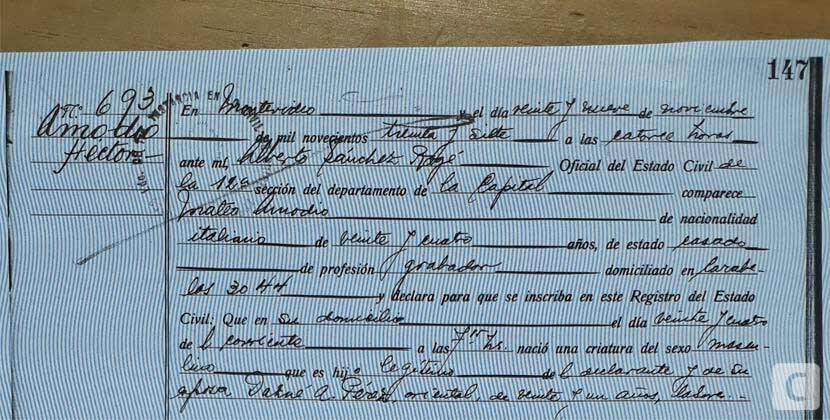 147
No. 693
Amodio
Hector
En Montevideo y el día veinte y nueve de noviembre
de mil novecientos treinta y siete a las catorce horas
ante mí, Alberto Sanchez Rogé Oficial del Estado Civil de
la 12a sección del departamento de la Capital comparece
Mateo Amodio de nacionalidad
italiano de veinte y cuatro años, de estado casado
de profesión grabador domiciliado en Carabe-
las 3044 y declara para que se inscriba en este Registro del Estado
Civil: Que en su domicilio el día veinte y cuatro
del corriente a las 7 hs. nació una criatura del sexo mascu-
lino que es hijo legítimo del declarante y de su
esposa Dafné A. Pérez, oriental, de veinte y un años, labore